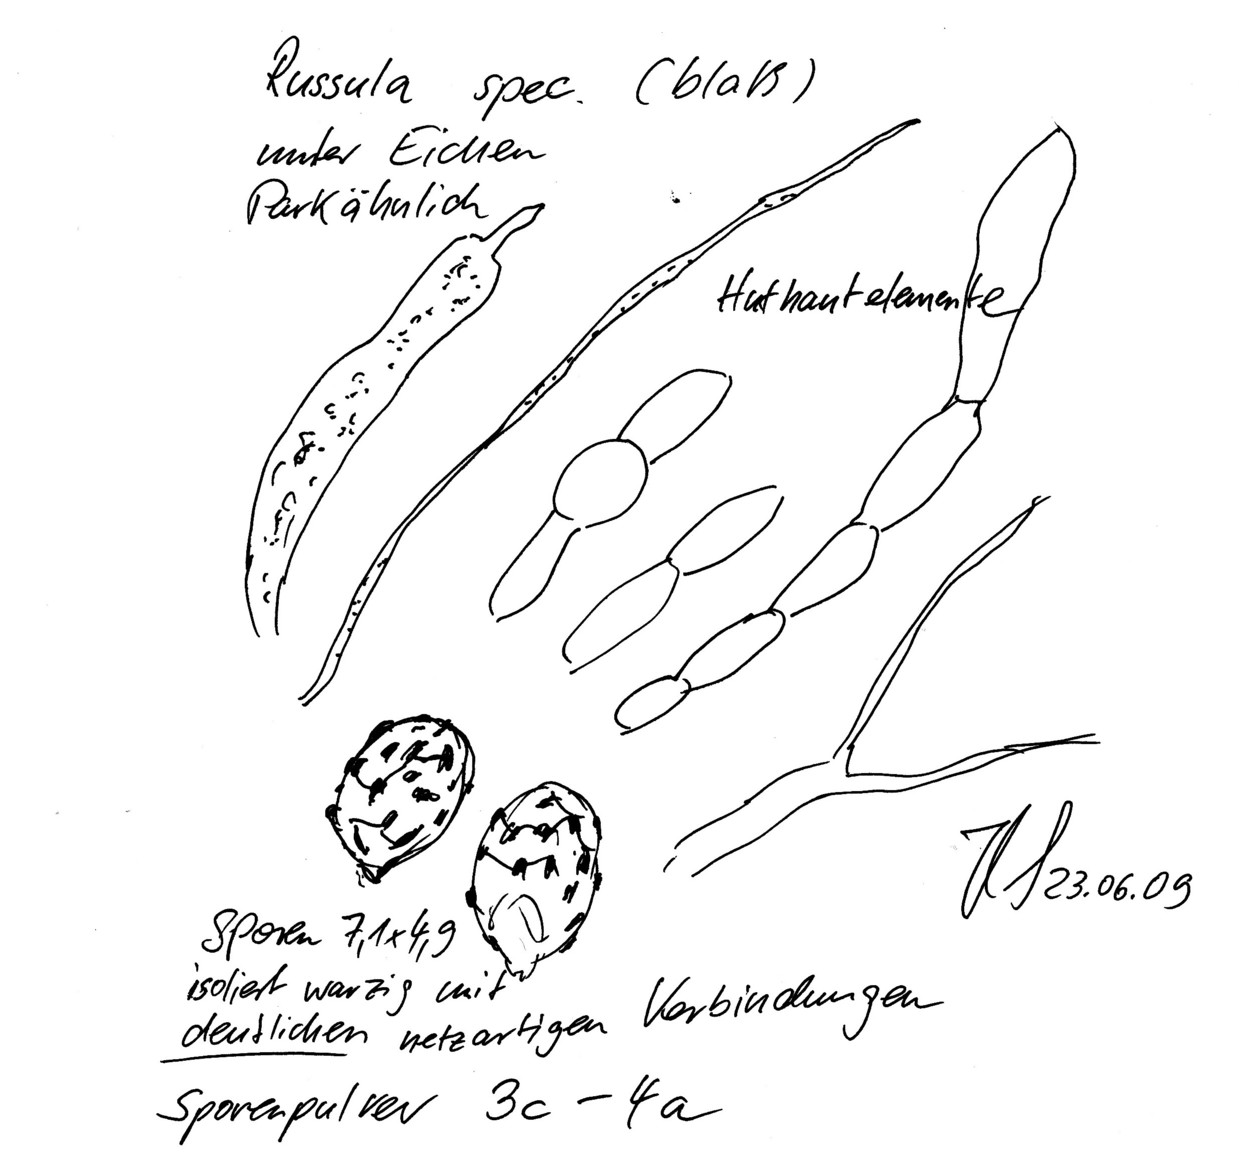 Russula spec. (blaß)
unter Eichen
Parkähnlich
Huthautelemente
23.06.09
Sporen 7,1x4,9
isoliert warzig mit
deutlichen netzartigen Verbindungen
Sporenpulver 3c - 4a